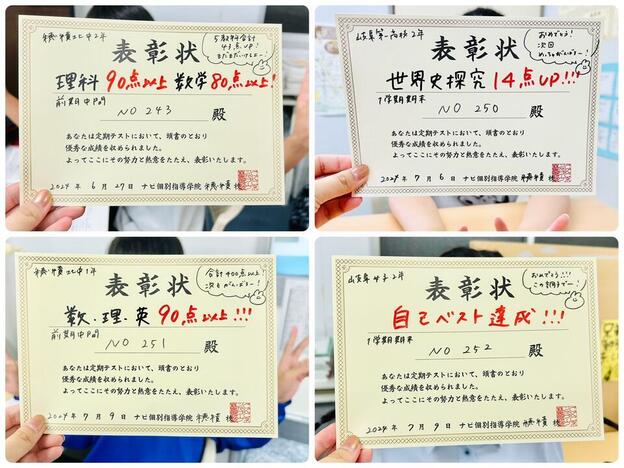 穂積北中2年
5教科合計
43点UP!
まだまだいけるよー!
表彰状
理科90点以上 数学80点以上!
前期中間
NO 243 殿
あなたは定期テストにおいて、頭書のとおり
優秀な成績を収められました。
よってここにその努力と熱意をたたえ、表彰いたします。
2024年 6月27日 ナビ個別指導学院 穂積校
岐阜第一高校2年
おめでとう!
次回
めっちゃがんばろー!
表彰状
世界史探究 14点UP!!!
1学期期末
NO 250 殿
あなたは定期テストにおいて、頭書のとおり
優秀な成績を収められました。
よってここにその努力と熱意をたたえ、表彰いたします。
2024年 7月6日 ナビ個別指導学院 穂積校
穂積北中1年
合計400点以上!
次もがんばろー!
表彰状
数・理・英 90点以上!!!
前期中間
NO 251 殿
あなたは定期テストにおいて、頭書のとおり
優秀な成績を収められました。
よってここにその努力と熱意をたたえ、表彰いたします。
2024年 7月9日 ナビ個別指導学院 穂積校
岐阜女子2年
おめでとう!!!
この調子でー!
表彰状
自己ベスト達成!!!
1学期期末
NO 252 殿
あなたは定期テストにおいて、頭書のとおり
優秀な成績を収められました。
よってここにその努力と熱意をたたえ、表彰いたします。
2024年 7月9日 ナビ個別指導学院 穂積校